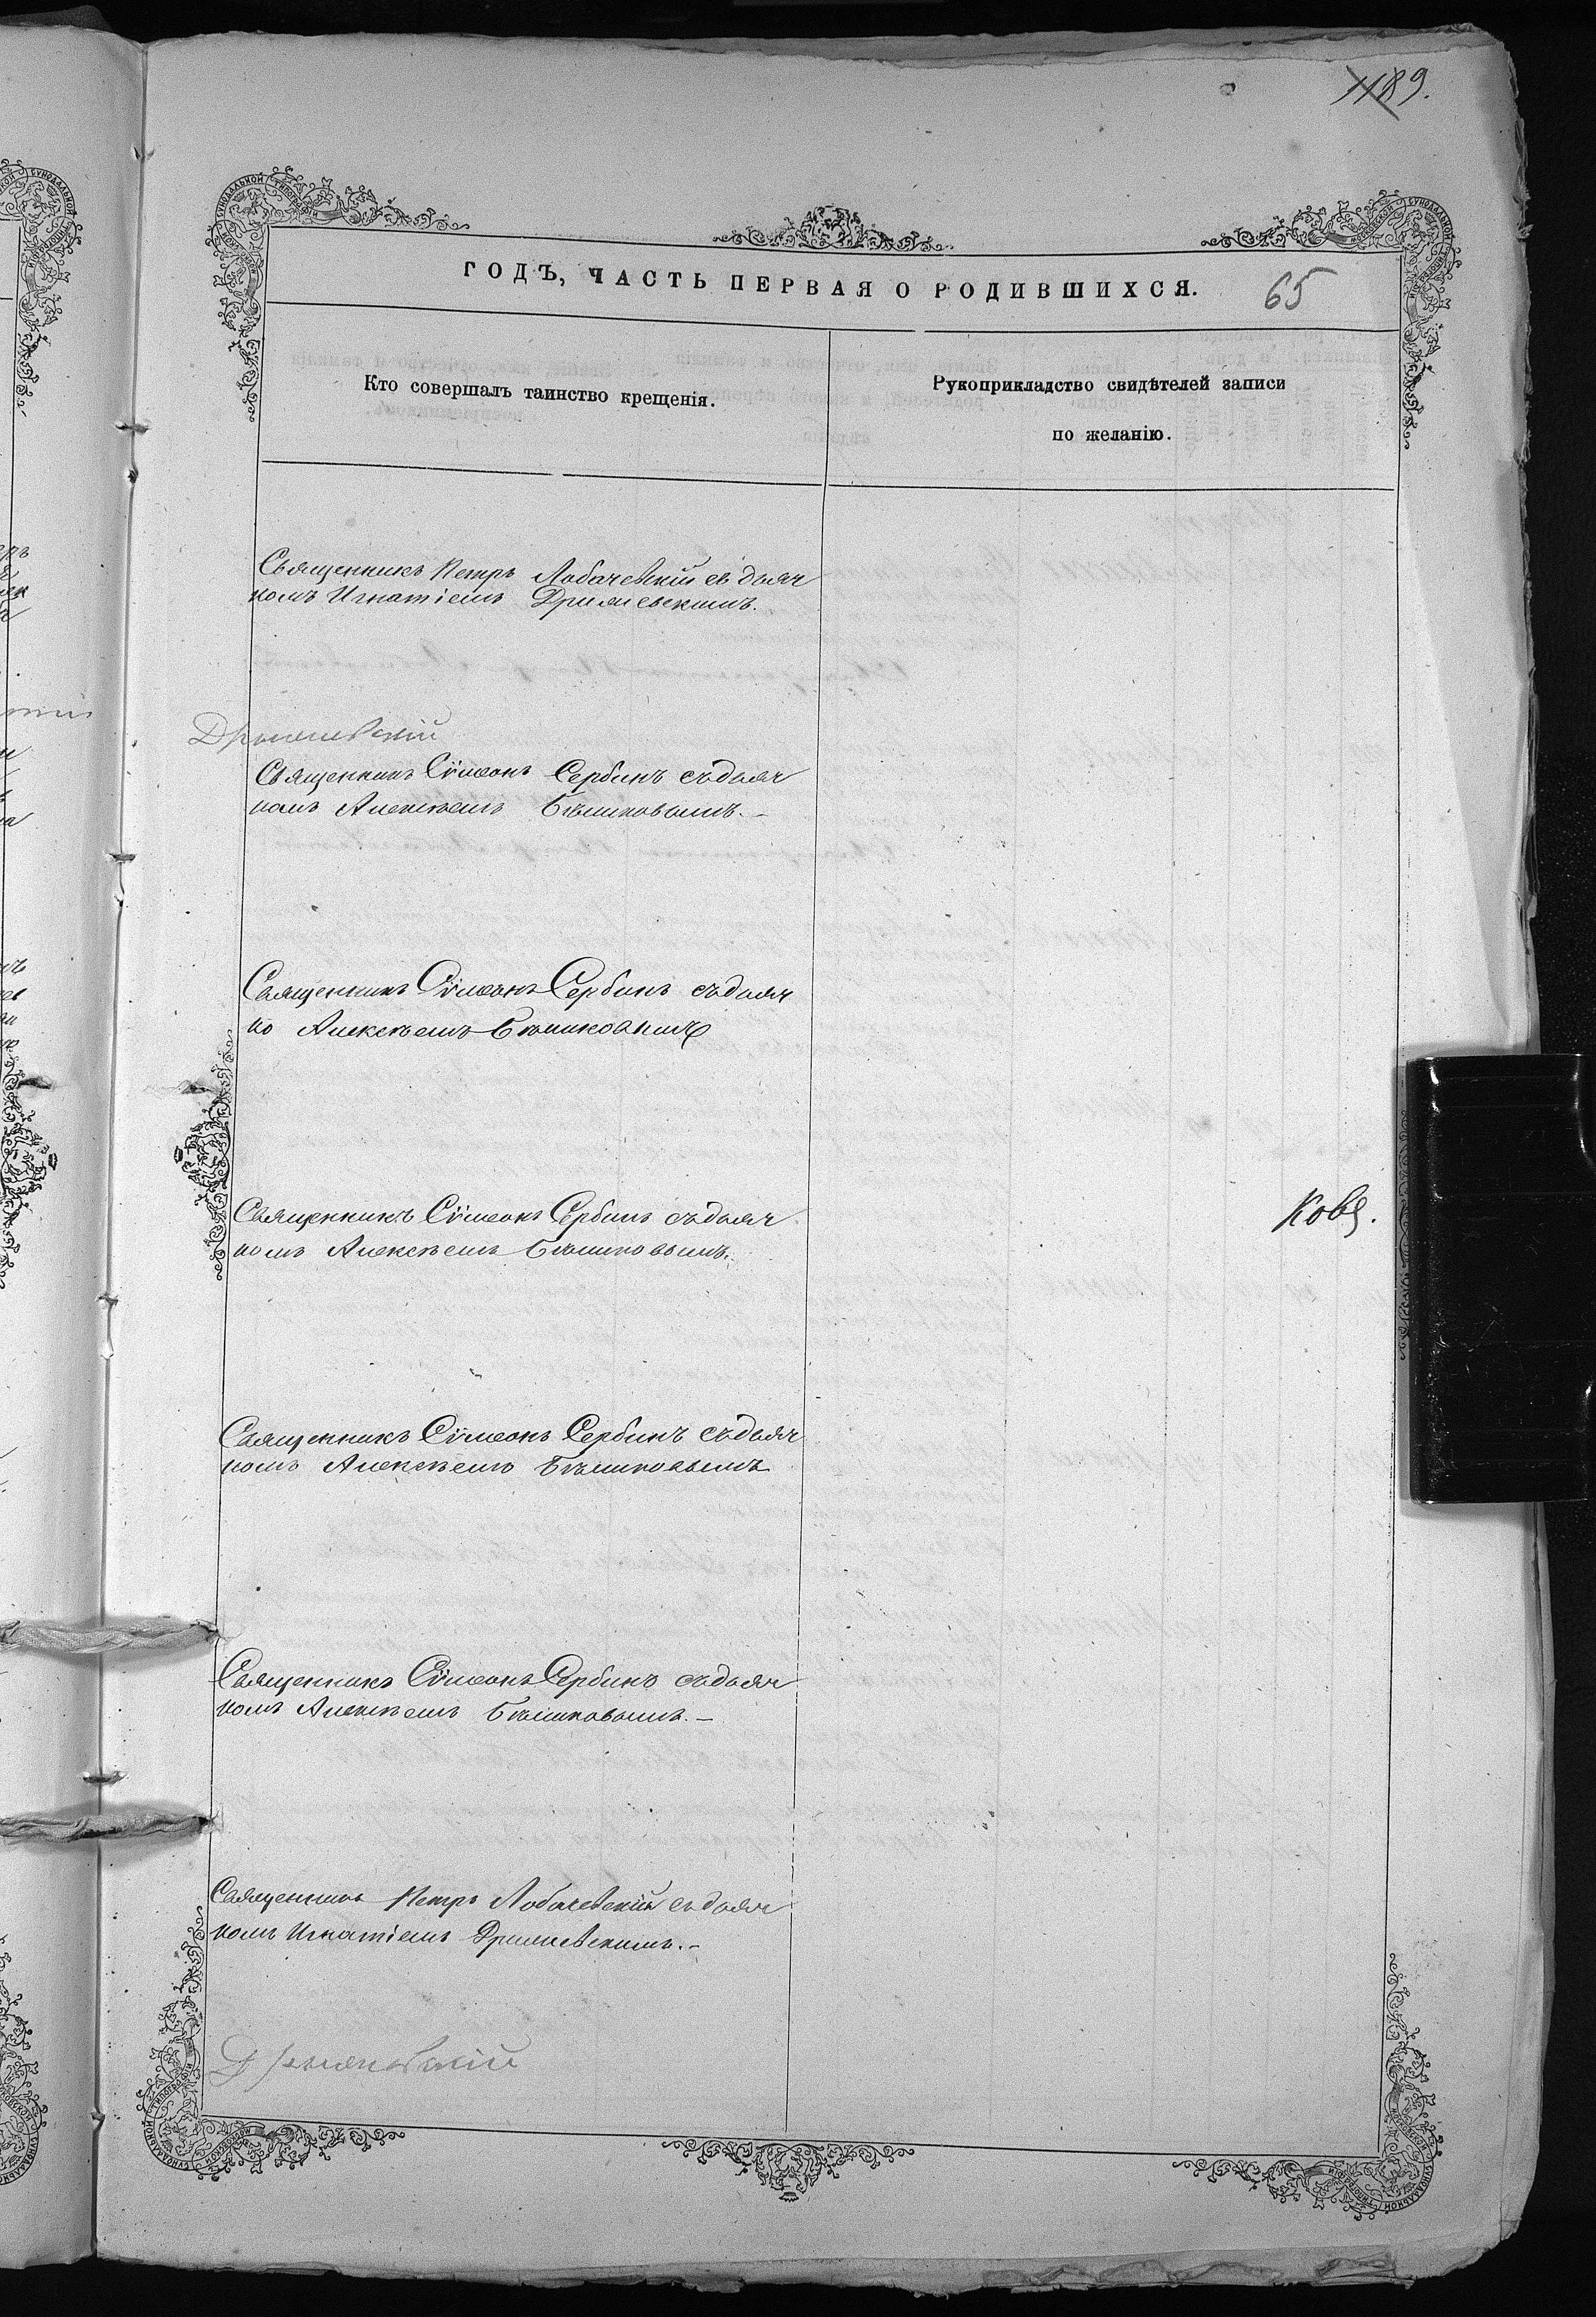 1189.
ГОДЪ, ЧАСТЬ ПЕРВАЯ О РОДИВШИХСЯ.
65
Кто совершалъ таинство крещенія.
Рукоприкладство свидѣтелей записи
по желанію.
Священникъ Петръ Лобачевскій съ дьяч
комъ Игнатіемъ Дрылевскимъ.
Дрылевскій
Священникъ Сѵмеонъ Сербинъ съ дьяч
комъ Алексѣемъ Бѣликовымъ.-
Священникъ Сѵмеонъ Сербинъ съ дьяч
ко Алексѣемъ Бѣликовымъ
Священникъ Сѵмеонъ Сербинъ съ дьяч
комъ Алексѣемъ Бѣликовымъ.
Священникъ Сѵмеонъ Сербинъ съ дьяч
комъ Алексѣемъ Бѣликовымъ
Священникъ Сѵмеонъ Сербинъ съ дьяч
комъ Алексѣемъ Бѣликовымъ.-
Священникъ Петръ Лобачевскій съ дьяч
комъ Игнатіемъ Дрылевскимъ.-
Дрылевскій